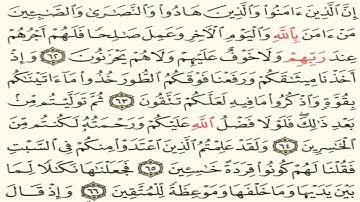 إِنَّ ٱلَّذِينَ ءَامَنُوا۟ وَٱلَّذِينَ هَادُوا۟ وَٱلنَّصَٰرَىٰ وَٱلصَّٰبِـِٔينَ
مَنْ ءَامَنَ بِٱللَّهِ وَٱلْيَوْمِ ٱلْءَاخِرِ وَعَمِلَ صَٰلِحًا فَلَهُمْ أَجْرُهُمْ
عِندَ رَبِّهِمْ وَلَا خَوْفٌ عَلَيْهِمْ وَلَا هُمْ يَحْزَنُونَ ٦٢ وَإِذْ
أَخَذْنَا مِيثَٰقَكُمْ وَرَفَعْنَا فَوْقَكُمُ ٱلطُّورَ خُذُوا۟ مَآ ءَاتَيْنَٰكُم
بِقُوَّةٍ وَٱذْكُرُوا۟ مَا فِيهِ لَعَلَّكُمْ تَتَّقُونَ ٦٣ ثُمَّ تَوَلَّيْتُم مِّنۢ
بَعْدِ ذَٰلِكَ فَلَوْلَا فَضْلُ ٱللَّهِ عَلَيْكُمْ وَرَحْمَتُهُۥ لَكُنتُم مِّنَ
ٱلْخَٰسِرِينَ ٦٤ وَلَقَدْ عَلِمْتُمُ ٱلَّذِينَ ٱعْتَدَوْا۟ مِنكُمْ فِى ٱلسَّبْتِ
فَقُلْنَا لَهُمْ كُونُوا۟ قِرَدَةً خَٰسِـِٔينَ ٦٥ فَجَعَلْنَٰهَا نَكَٰلًا لِّمَا
بَيْنَ يَدَيْهَا وَمَا خَلْفَهَا وَمَوْعِظَةً لِّلْمُتَّقِينَ ٦٦ وَإِذْ قَالَ